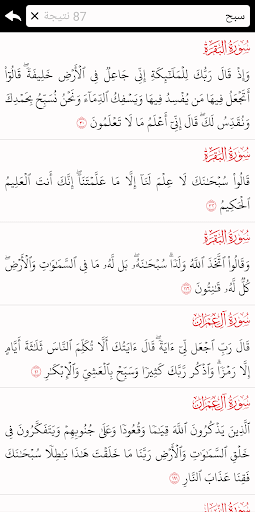 سبح
× 87 نتيجة
سُورَةُ البَقَرَةِ
وَإِذۡ قَالَ رَبُّكَ لِلۡمَلَـٰٓئِكَةِ إِنِّی جَاعِلࣱ فِی ٱلۡأَرۡضِ خَلِیفَةࣰۖ قَالُوۤا۟
أَتَجۡعَلُ فِیهَا مَن یُفۡسِدُ فِیهَا وَیَسۡفِكُ ٱلدِّمَاۤءَ وَنَحۡنُ نُسَبِّحُ بِحَمۡدِكَ
وَنُقَدِّسُ لَكَۖ قَالَ إِنِّیۤ أَعۡلَمُ مَا لَا تَعۡلَمُونَ ٣٠
سُورَةُ البَقَرَةِ
قَالُوا۟ سُبۡحَـٰنَكَ لَا عِلۡمَ لَنَاۤ إِلَّا مَا عَلَّمۡتَنَاۤۖ إِنَّكَ أَنتَ ٱلۡعَلِیمُ
ٱلۡحَكِیمُ ٣٢
سُورَةُ البَقَرَةِ
وَقَالُوا۟ ٱتَّخَذَ ٱللَّهُ وَلَدࣰاۗ سُبۡحَـٰنَهُۥۖ بَل لَّهُۥ مَا فِی ٱلسَّمَـٰوَ ٰ⁠تِ وَٱلۡأَرۡضِۖ
كُلࣱّ لَّهُۥ قَـٰنِتُونَ ١١٦
سُورَةُ آلِ عِمۡرَانَ
قَالَ رَبِّ ٱجۡعَل لِّیۤ ءَایَةࣰۖ قَالَ ءَایَتُكَ أَلَّا تُكَلِّمَ ٱلنَّاسَ ثَلَـٰثَةَ أَیَّامٍ
إِلَّا رَمۡزࣰاۗ وَٱذۡكُر رَّبَّكَ كَثِیرࣰا وَسَبِّحۡ بِٱلۡعَشِیِّ وَٱلۡإِبۡكَـٰرِ ٤١
سُورَةُ آلِ عِمۡرَانَ
ٱلَّذِینَ یَذۡكُرُونَ ٱللَّهَ قِیَـٰمࣰا وَقُعُودࣰا وَعَلَىٰ جُنُوبِهِمۡ وَیَتَفَكَّرُونَ فِی
خَلۡقِ ٱلسَّمَـٰوَ ٰ⁠تِ وَٱلۡأَرۡضِ رَبَّنَا مَا خَلَقۡتَ هَـٰذَا بَـٰطِلࣰا سُبۡحَـٰنَكَ
فَقِنَا عَذَابَ ٱلنَّارِ ١٩١